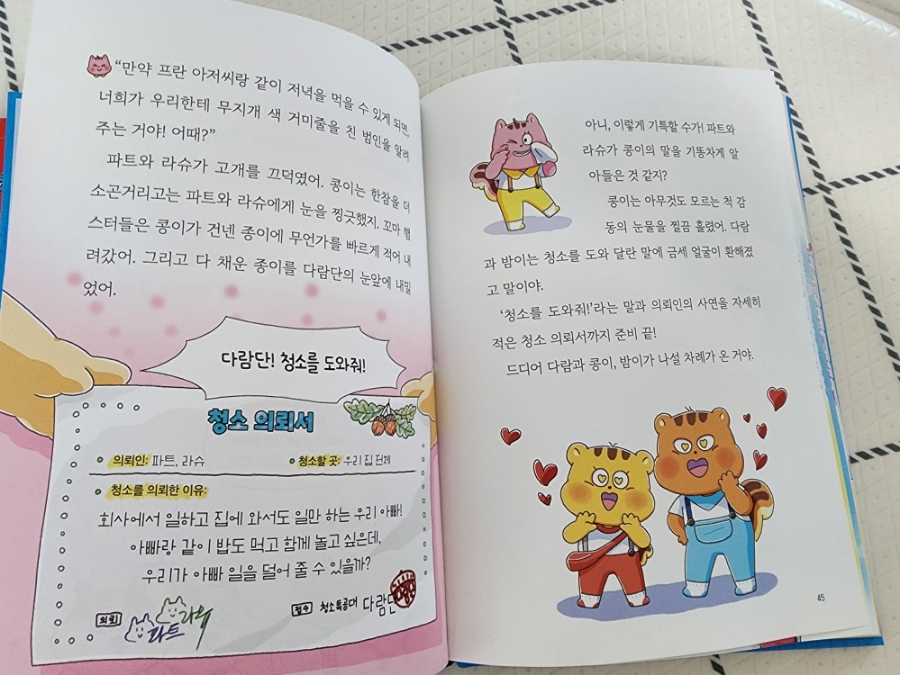 “만약 프란 아저씨랑 같이 저녁을 먹을 수 있게 되면,
너희가 우리한테 무지개 색 거미줄을 친 범인을 알려
주는 거야! 어때?”
파트와 라슈가 고개를 끄덕였어. 콩이는 한참을 더
소곤거리고는 파트와 라슈에게 눈을 찡긋했지. 꼬마 햄
스터들은 콩이가 건넨 종이에 무언가를 빠르게 적어 내
려갔어. 그리고 다 채운 종이를 다람단의 눈앞에 내밀
었어.
다람단! 청소를 도와줘!
청소 의뢰서
의뢰인: 파트, 라슈
청소할 곳: 우리 집 전체
청소를 의뢰한 이유:
회사에서 일하고 집에 와서도 일만 하는 우리 아빠!
아빠랑 같이 밥도 먹고 함께 놀고 싶은데,
우리가 아빠 일을 덜어 줄 수 있을까?
의뢰 파트 라슈
접수 청소특공대 다람단
아니, 이렇게 기특할 수가! 파트와
라슈가 콩이의 말을 기똥차게 알
아들은 것 같지?
콩이는 아무것도 모르는 척 감
동의 눈물을 찔끔 흘렸어. 다람
과 밤이는 청소를 도와 달란 말에 금세 얼굴이 환해졌
고 말이야.
‘청소를 도와줘!’라는 말과 의뢰인의 사연을 자세히
적은 청소 의뢰서까지 준비 끝!
드디어 다람과 콩이, 밤이가 나설 차례가 온 거야.
45